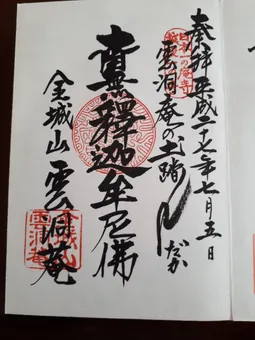 奉拝 平成二十七年七月五日
雲洞庵の土踏んだか
南無釋迦牟尼佛
金城山 雲洞庵
金城山
雲洞庵